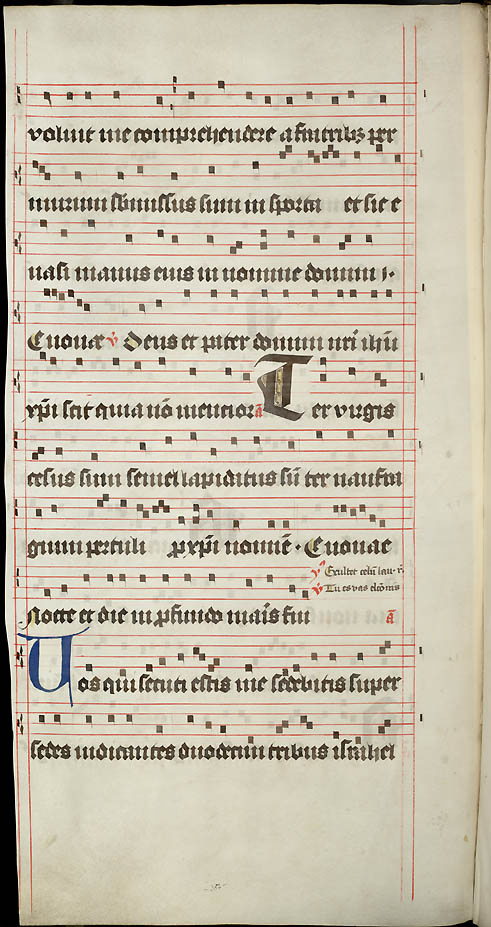 voluit me comprehendere a fratribꝫ per
murum sbmissus sum in sporta et sic e
uasi manus eius in nomine domini ·
Euouae ℣ Deus et pater domini nr̄i ih̄u
xp̄i scit quia nō mencior ā Ter virgis
cesus sum semel lapidatus sū ter naufra
gium pertuli p xp̄i nomē · Euouae
℣ Exultet celū lau·
Nocte et die in pfundo maīs fui ā
Vos qui secuti estis me sedebitis super
sedes iudicantes duodecim tribus israhel